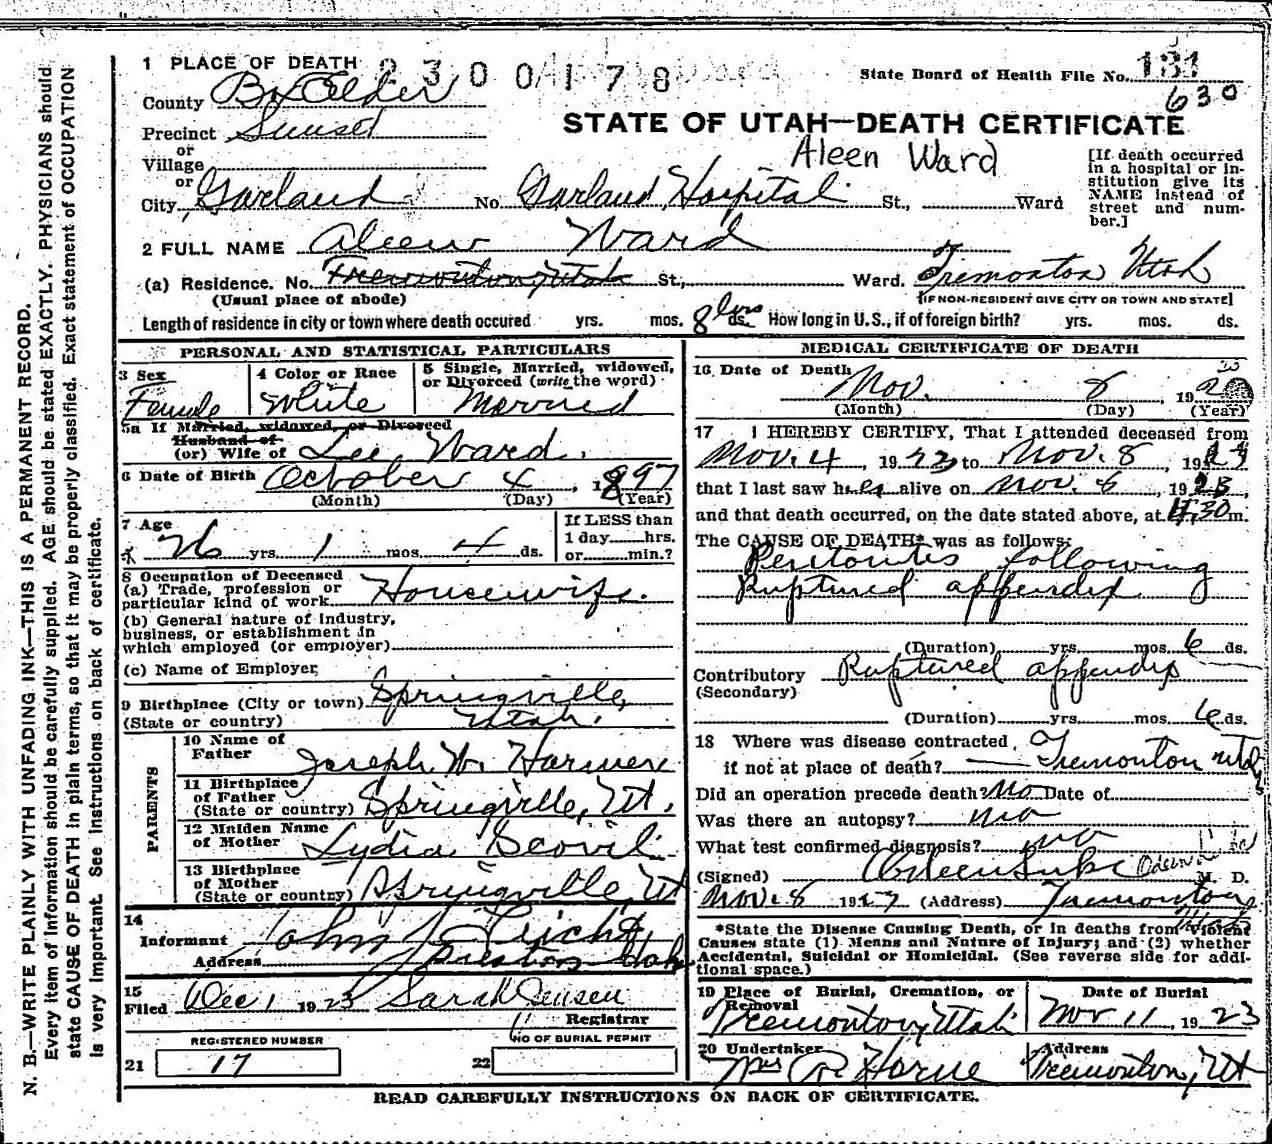 1 PLACE OF DEATH 2300178
State Board of Health File No. 181
630
County Box Elder
Precinct Sunset
STATE OF UTAH—DEATH CERTIFICATE
or
Village
Aleen Ward
or
City Garland No. Garland Hospital St., Ward
[If death occurred in a hospital or institution give its NAME instead of street and number.]
2 FULL NAME Aleen Ward
(a) Residence. No. Tremonton, Utah St., Ward. of Tremonton Utah
(Usual place of abode) [IF NON-RESIDENT GIVE CITY OR TOWN AND STATE]
Length of residence in city or town where death occured yrs. mos. 8 ds. How long in U.S., if of foreign birth? yrs. mos. ds.
PERSONAL AND STATISTICAL PARTICULARS
3 Sex 4 Color or Race 5 Single, Married, widowed, or Divorced (write the word)
Female White Married
5a If Married, widowed, or Divorced
Husband of
(or) Wife of Lee Ward.
6 Date of Birth October 4, 1897
(Month) (Day) (Year)
7 Age If LESS than
26 yrs. 1 mos. 4 ds. 1 day hrs.
or min.?
8 Occupation of Deceased
(a) Trade, profession or
particular kind of work Housewife.
(b) General nature of industry,
business, or establishment in
which employed (or employer)
(c) Name of Employer
9 Birthplace (City or town) Springville,
(State or country) Utah.
PARENTS
10 Name of
Father Joseph W. Harmer
11 Birthplace
of Father
(State or country) Springville, Ut.
12 Maiden Name
of Mother Lydia Scovil
13 Birthplace
of Mother
(State or country) Springville, Ut
14
Informant John J.
Address Preston Idaho
15
Filed Dec 1 1923 Sarah Jensen
Registrar
REGISTERED NUMBER NO OF BURIAL PERMIT
21 17 22
MEDICAL CERTIFICATE OF DEATH
16 Date of Death Nov. 8 192
23
(Month) (Day) (Year)
17 I HEREBY CERTIFY, That I attended deceased from
Nov. 4, 1923 to Nov. 8, 1923
that I last saw her alive on Nov. 8, 1923,
and that death occurred, on the date stated above, at 4:30 m.
The CAUSE OF DEATH* was as follows:
Peritonites following
Ruptured appendix
(Duration) yrs. mos. 6 ds.
Contributory Ruptured appendix
(Secondary)
(Duration) yrs. mos. 6 ds.
18 Where was disease contracted
if not at place of death? Tremonton Utah
Did an operation precede death? No Date of
Was there an autopsy? no
What test confirmed diagnosis? no
(Signed) M. D.
Nov. 8 1923 (Address) Tremonton
Utah
*State the Disease Causing Death, or in deaths from Violent
Causes state (1) Means and Nature of Injury; and (2) whether
Accidental, Suicidal or Homicidal. (See reverse side for addi-
tional space.)
19 Place of Burial, Cremation, or Removal Date of Burial
Tremonton, Utah Nov 11, 1923
20 Undertaker Address
Mrs Horne Tremonton, Ut
READ CAREFULLY INSTRUCTIONS ON BACK OF CERTIFICATE.
N. B.—WRITE PLAINLY WITH UNFADING INK—THIS IS A PERMANENT RECORD.
Every item of Information should be carefully supplied. AGE should be stated EXACTLY. PHYSICIANS should
state CAUSE OF DEATH in plain terms, so that it may be properly classified. Exact statement of OCCUPATION
is very Important. See Instructions on back of certificate.